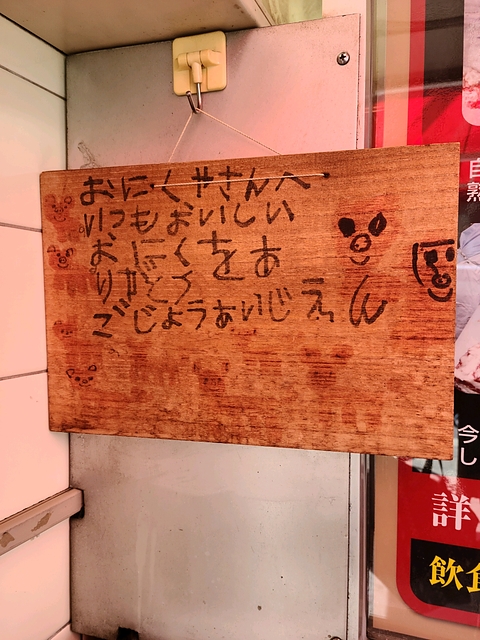 おにくやさんへ
いつもおいしい
おにくをあ
りがとう
ごじょうぁいじえん
自
熟
今
し
詳
飲食